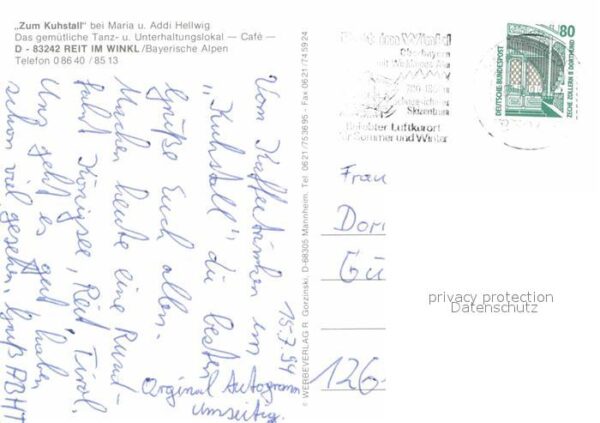 „Zum Kuhstall" bei Maria u. Addi Hellwig
Das gemütliche Tanz- u. Unterhaltungslokal — Café —
D - 83242 REIT IM WINKL/Bayerische Alpen
Telefon 0 86 40 / 85 13
15.7.94
Vom Kaffeetrinken im
„Kuhstall" die besten
Grüße Euch allen.
Machen heute eine Rund-
fahrt Königsee, Reit, Tirol.
Uns geht es gut haben
schon viel gesehen. Gruß
Orginal Autogramm
umseitig.
© WERBEVERLAG R. Gorzinski, D-68305 Mannheim, Tel. 0621/753695 - Fax 0621/745924
Reit im Winkl
Oberbayern
Skizentrum
Beliebter Luftkurort
für Sommer und Winter
DEUTSCHE BUNDESPOST
80
ZECHE ZOLLERN II DORTMUND
Frau
Dori
Gü
126
privacy protection
Datenschutz